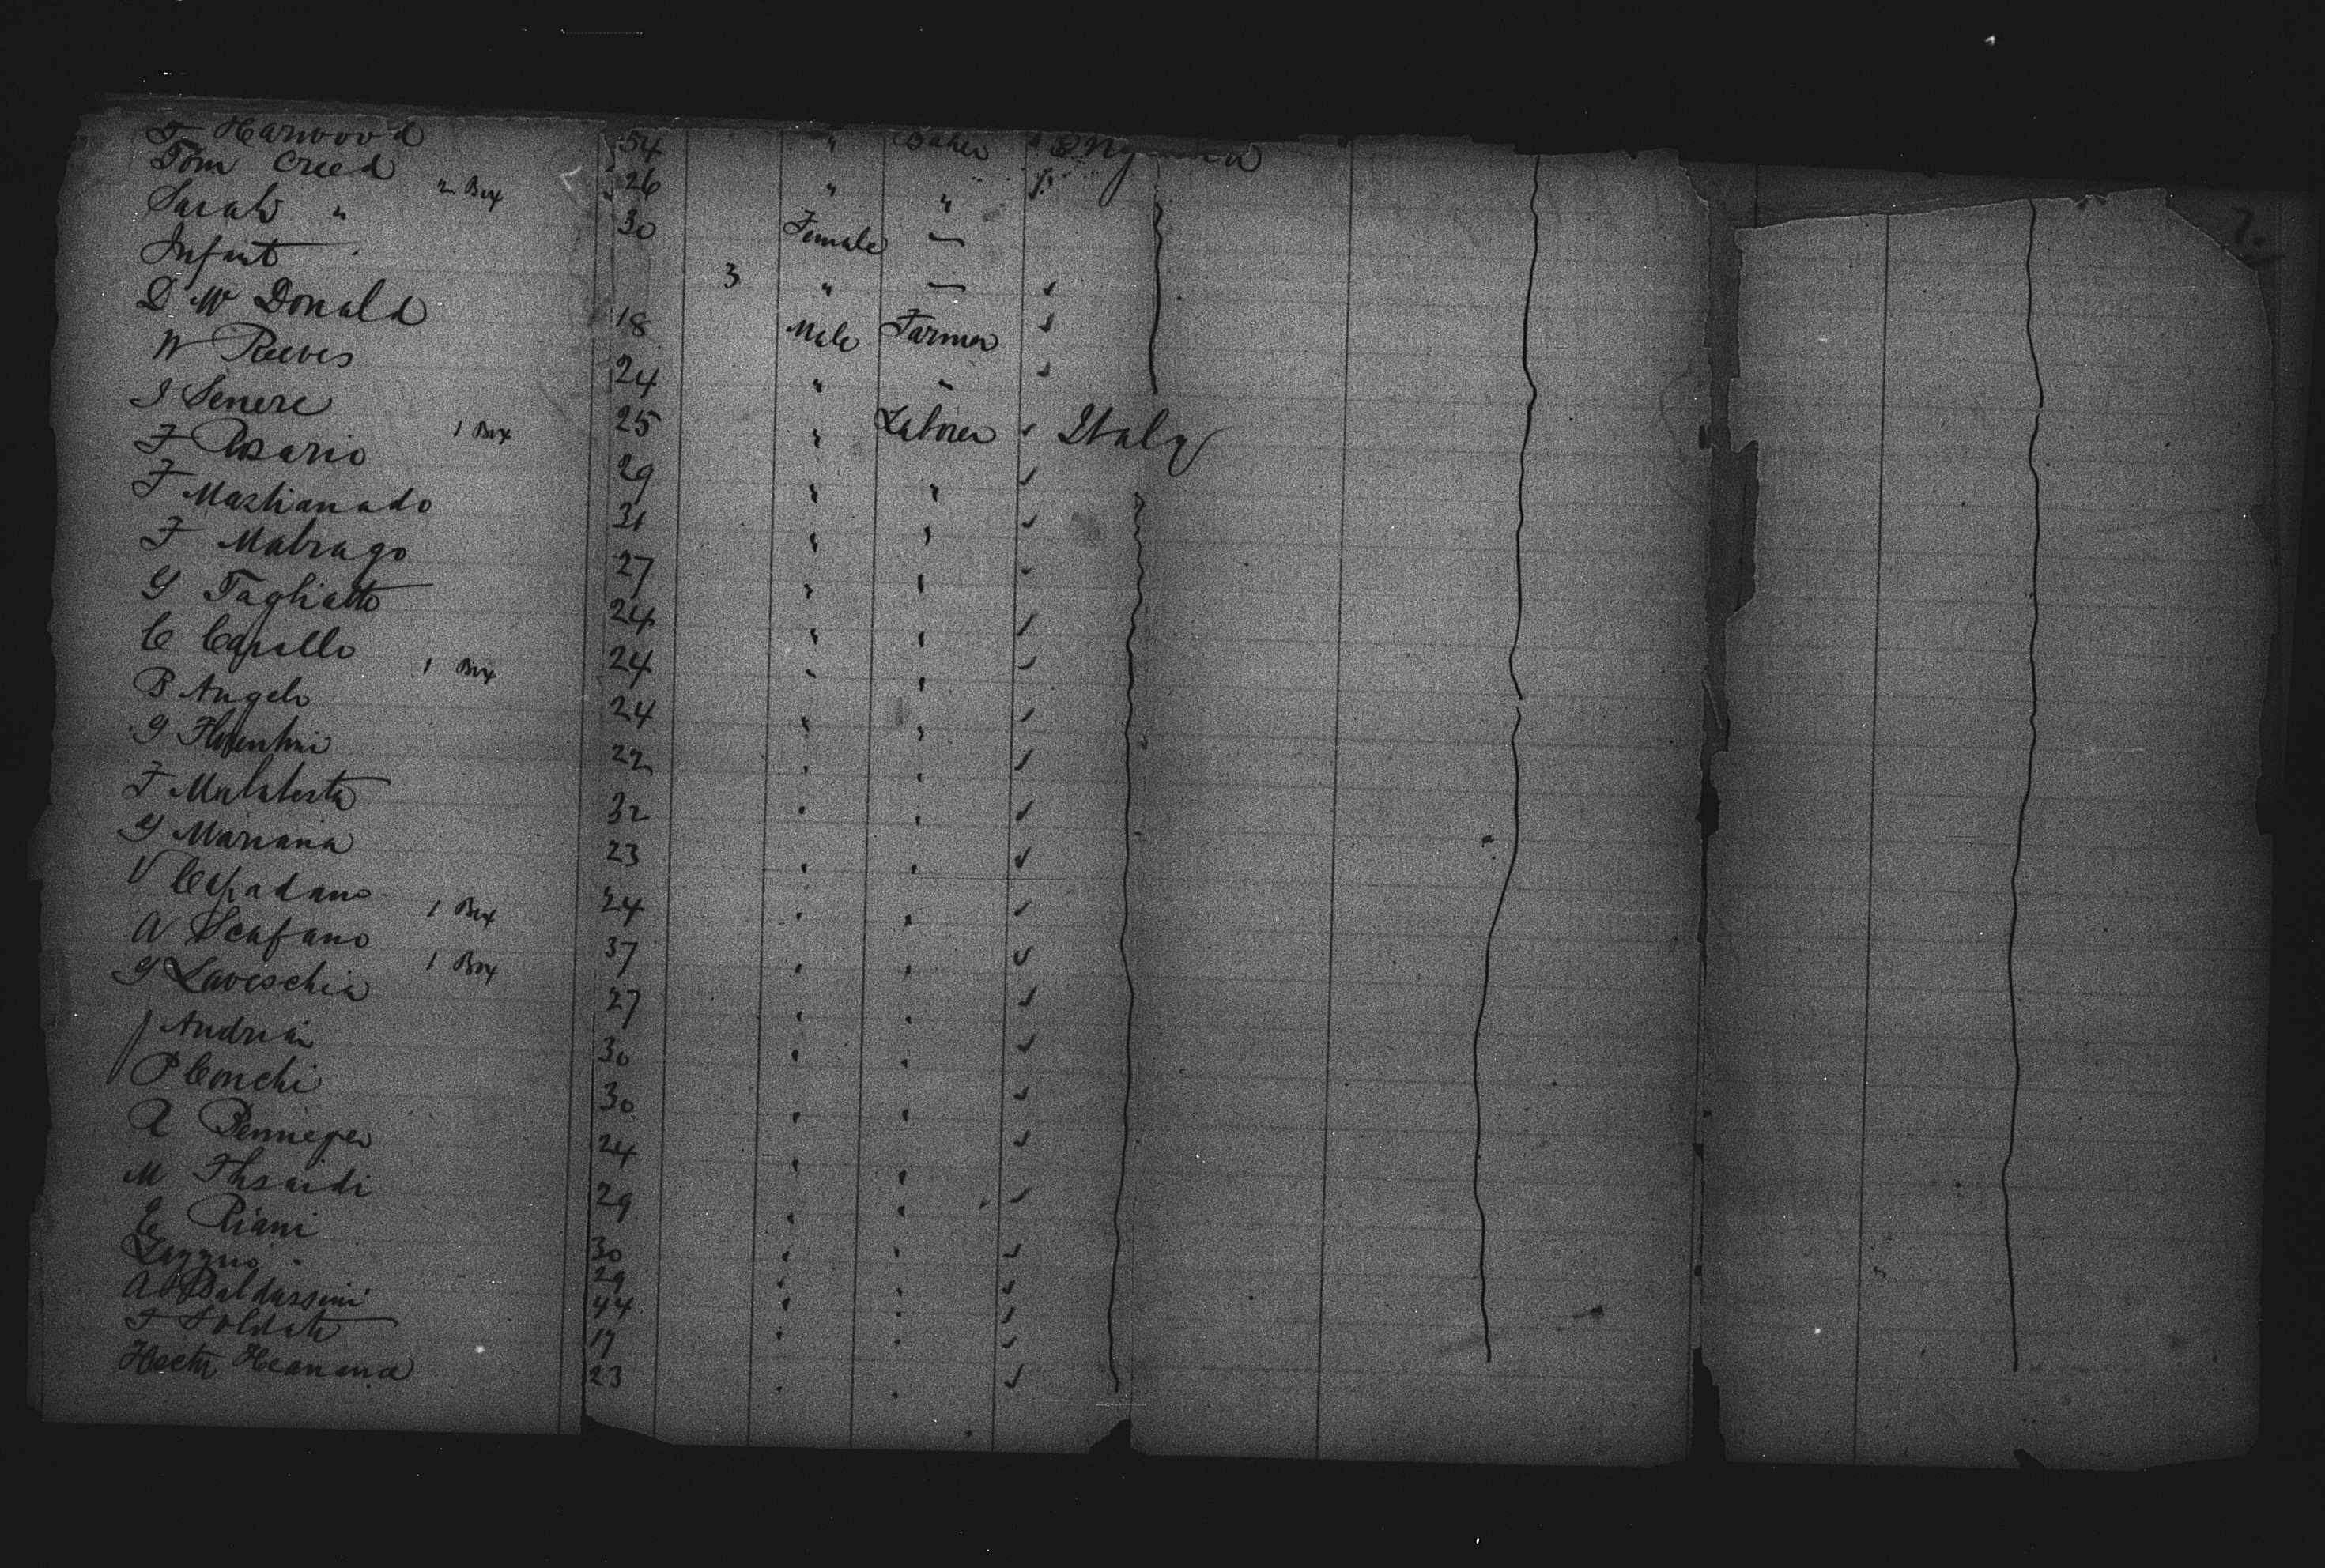 F Harwood 54 " Baker England
Tom Creed 2 Box 26 " " ✓
Sarah " 30 Female —
Infant 3 " — ✓
D Mc Donald 18 Male Farmer ✓
W Reeves 24 " " ✓
I Senere 25 " Laborer ✓ Italy
F Rosario 1 Box 29 " " ✓
F Mastianado 31 " " ✓
F Mabrago 27 " " ✓
G Tagliatto 24 " " ✓
C Capallo 24 " " ✓
B Angelo 1 Box 24 " " ✓
G Florentini 22 " " ✓
F Malatesta 32 " " ✓
G Mariana 23 " " ✓
V Capadano 24 " " ✓
A Scafano 1 Box 37 " " ✓
G Laveschia 1 Box 27 " " ✓
Andrea 30 " " ✓
P Conchi 30 " " ✓
R 24 " " ✓
M 29 " " ✓
C Piani 30 " " ✓
29 " " ✓
A Baldassini 44 " " ✓
F Soldato 19 " " ✓
23 " " ✓